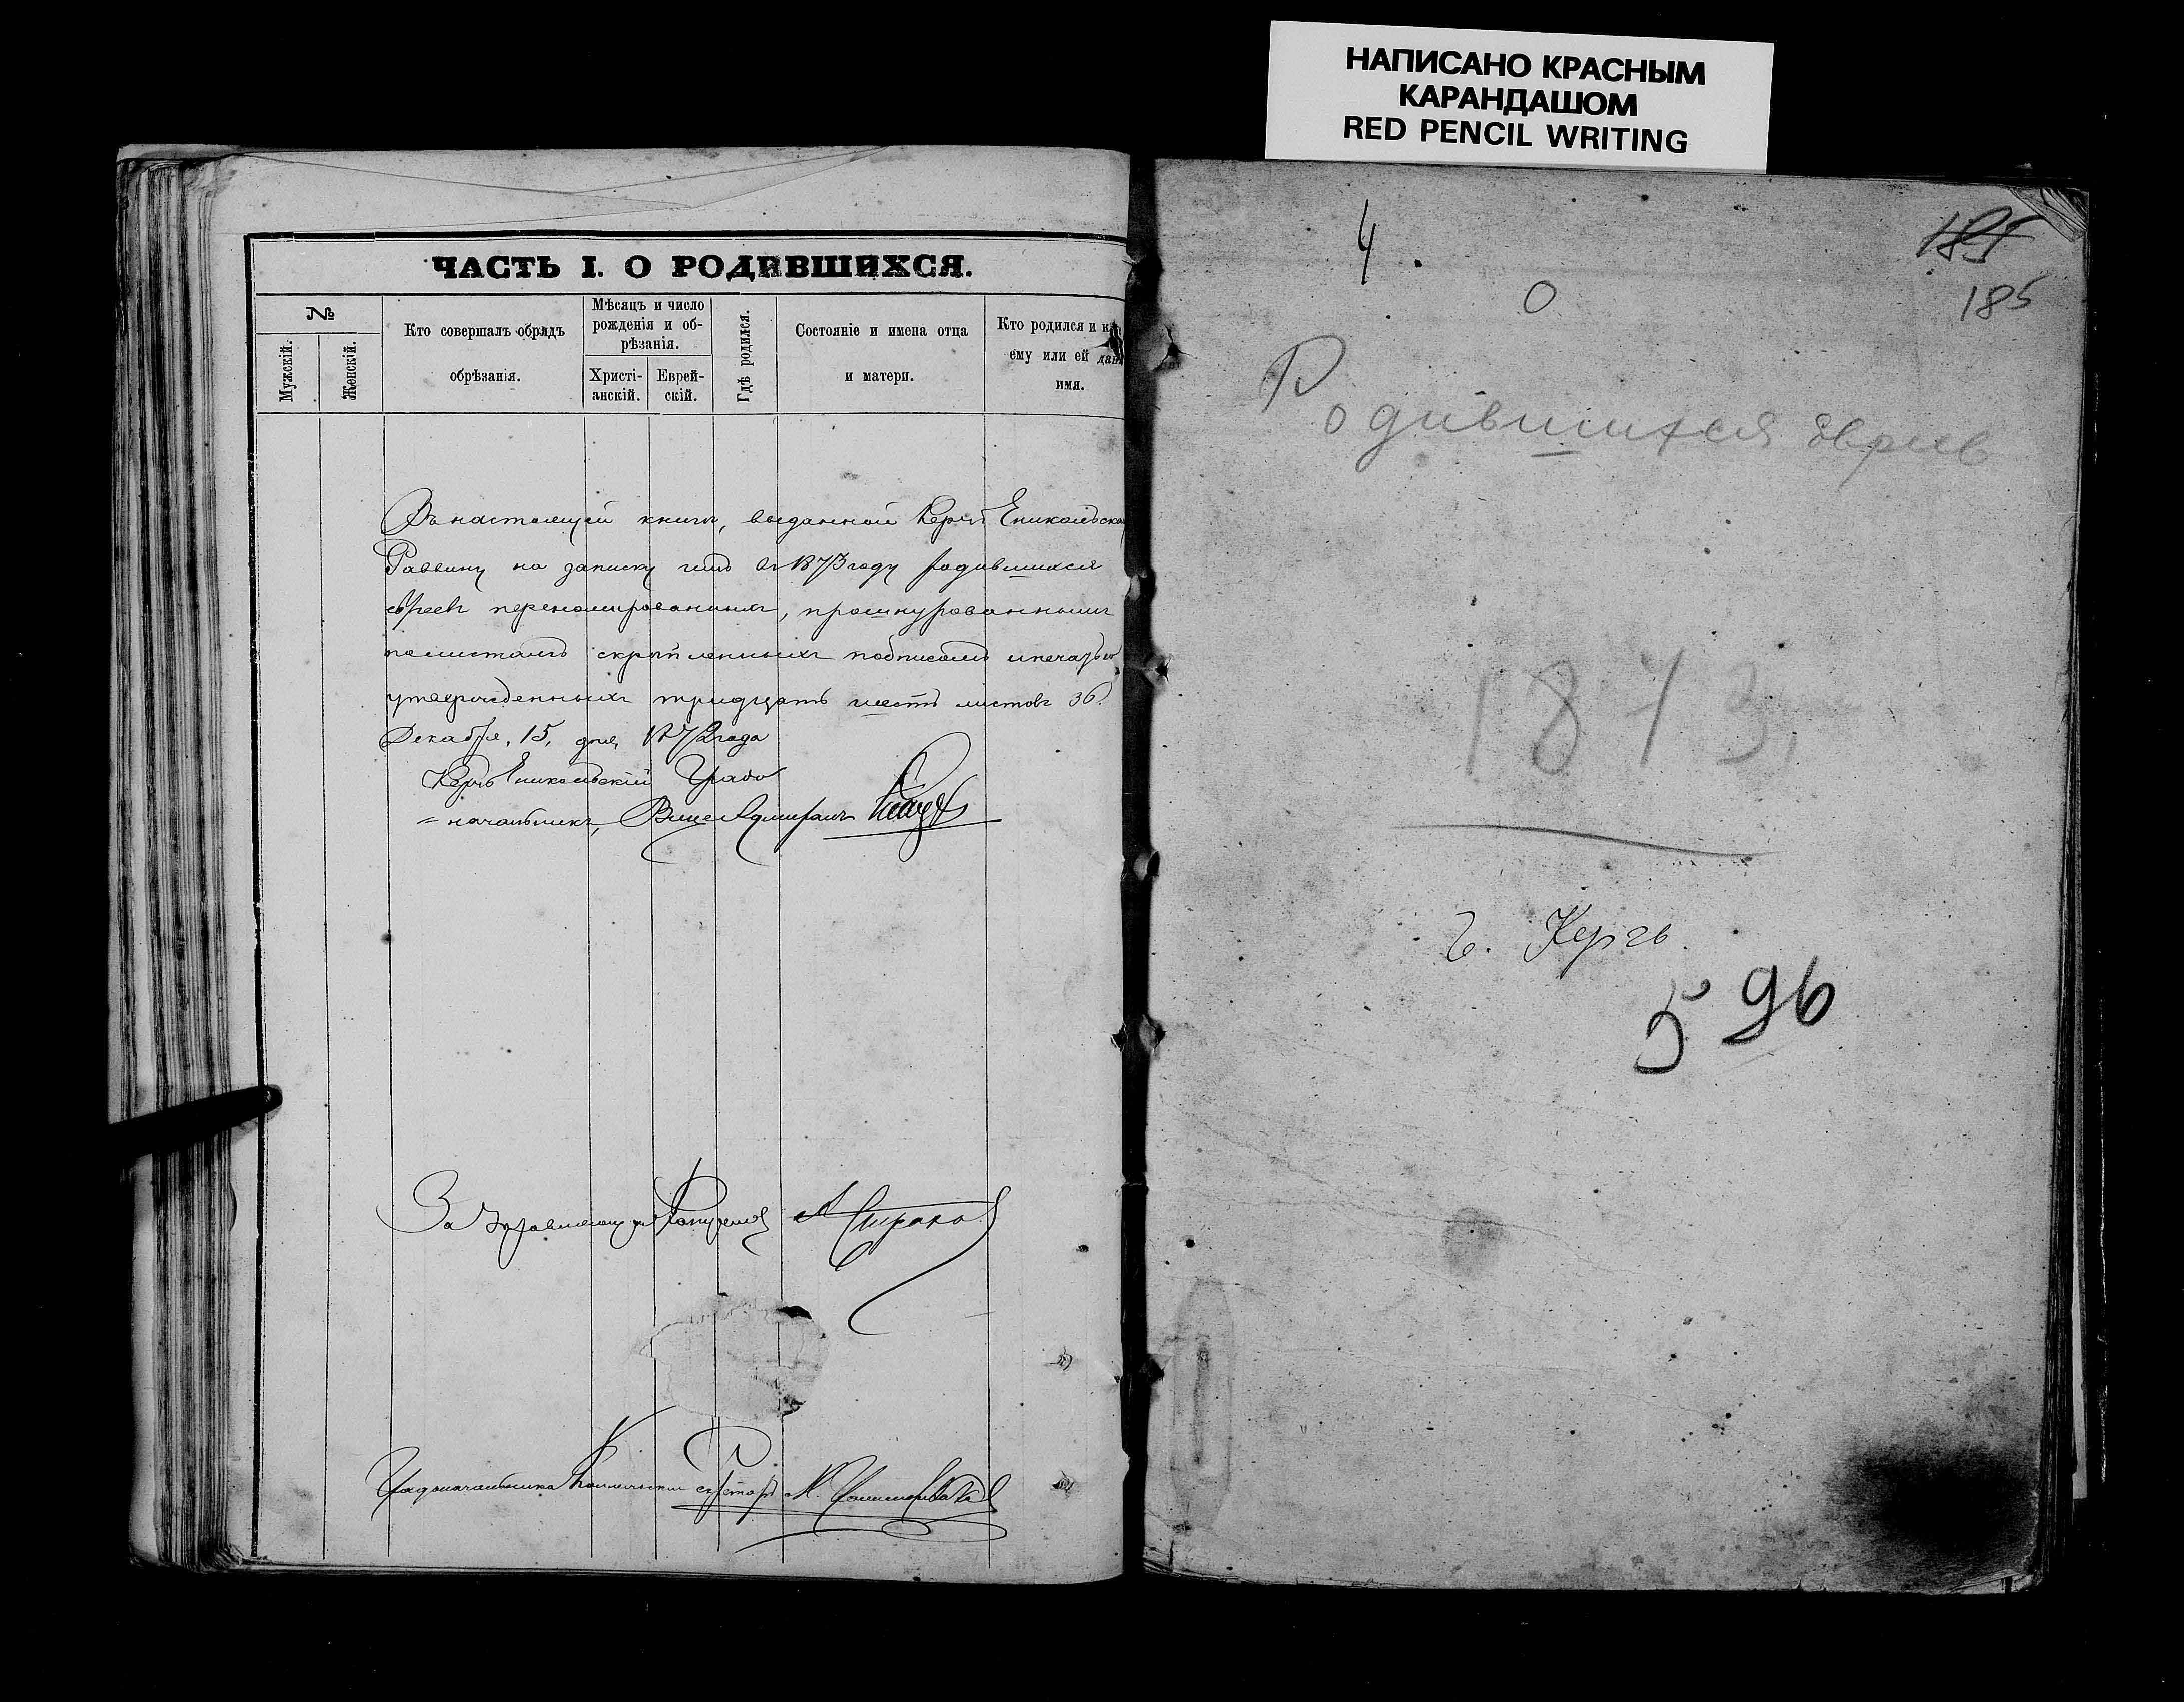 НАПИСАНО КРАСНЫМ
КАРАНДАШОМ
RED PENCIL WRITING
ЧАСТЬ I. О РОДИВШИХСЯ.
№
Мужскій.
Женскій.
Кто совершалъ обрядъ
обрѣзанія.
Мѣсяцъ и число
рожденія и об-
рѣзанія.
Христі-
анскій.
Еврей-
скій.
Гдѣ родился.
Состояніе и имена отца
и матери.
Кто родился и
ему или ей
имя.
Въ настоящей книгѣ, выданной Керчь Еникольско
Раввину на записку въ 1873 году родившихся
евреевъ переномерованныхъ, прошнурованныхъ
по листамъ скрѣпленныхъ подписомъ и печатью
утвержденныхъ тридцать шесть листовъ 36.
Декабря, 15, дня 1872 года
Керчь Еникольскій Градо
= начальникъ, Вице Адмиралъ
За Управляющаго
Градоначальника секретарь
4.
185
185
О
Родившихся
1873
г. Керчь.
596